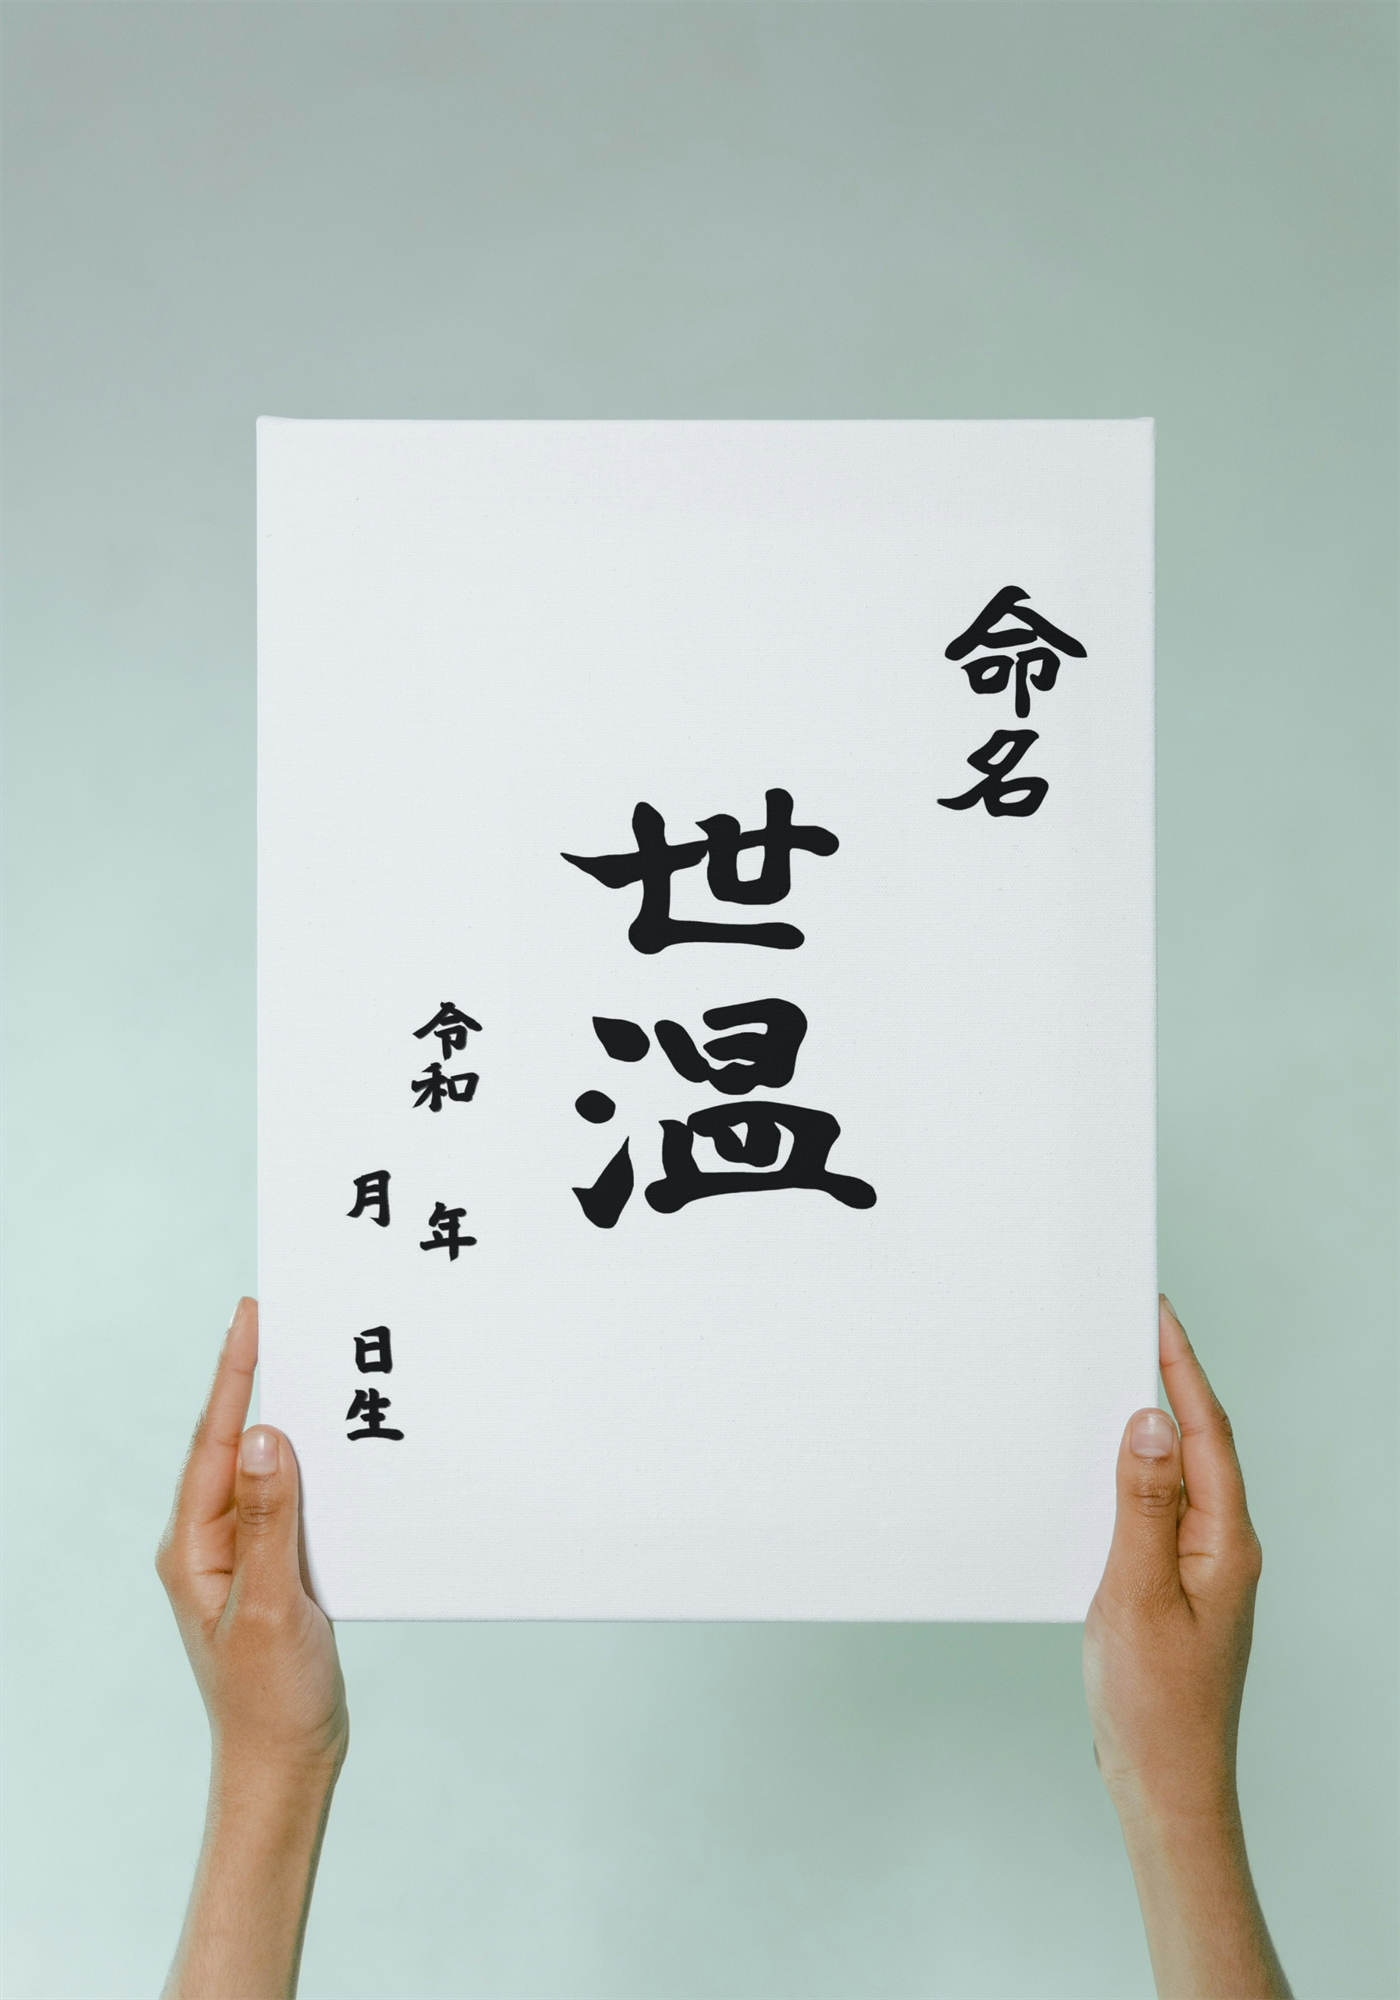 命名
世温
令和 年
月 日生